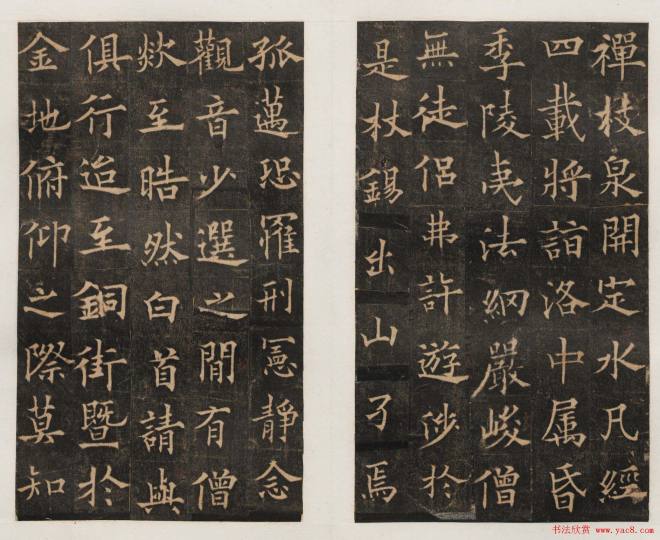 禪枝泉開定水凡經
四載將詣洛中属昏
季陵夷法綱嚴峻僧
無徒侶弗許遊涉於
是杖錫出山孑焉
孤邁恐罹刑憲靜念
觀音少選之間有僧
欻至晧然白首請與
俱行迨至銅街暨於
金地俯仰之際莫知
书法欣赏 www.yac8.com